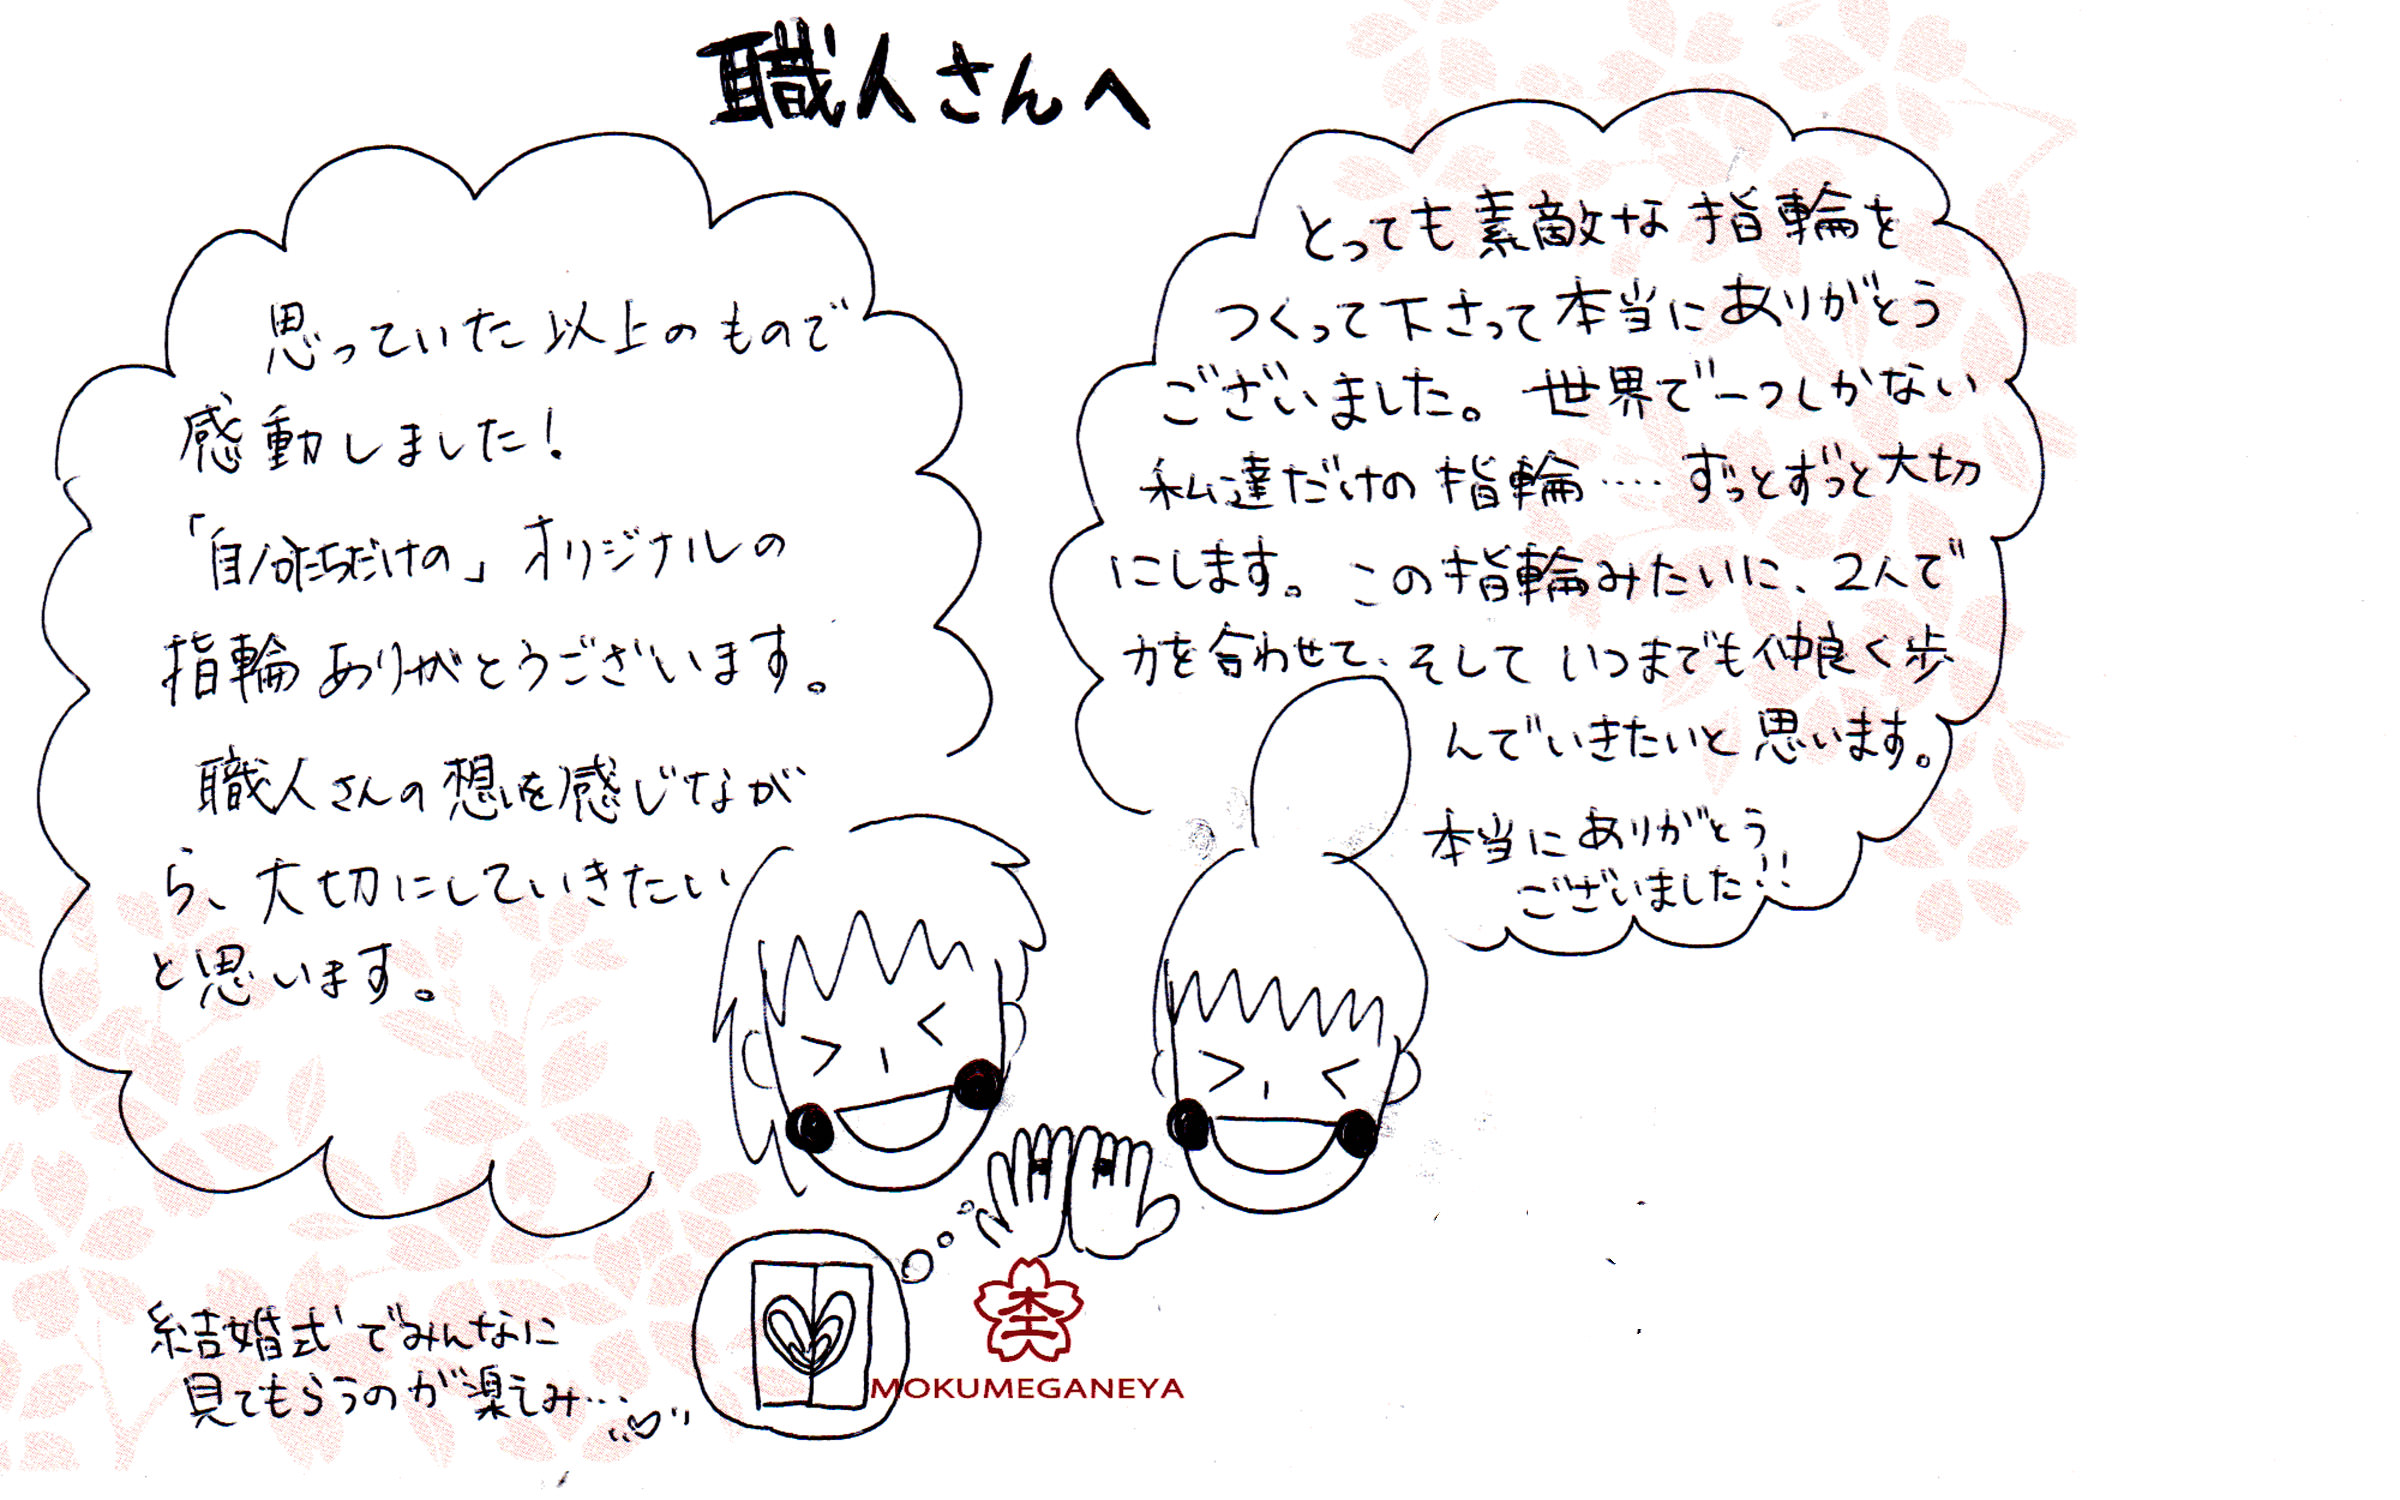 職人さんへ
思っていた以上のもので
感動しました！
「自分たちだけの」オリジナルの
指輪ありがとうございます。
職人さんの想いを感じなが
ら、大切にしていきたい
と思います。
とっても素敵な指輪を
つくって下さって本当にありがとう
ございました。世界で一つしかない
私達だけの指輪‥‥ずっとずっと大切
にします。この指輪みたいに、2人で
力を合わせて、そしていつまでも仲良く歩
んでいきたいと思います。
本当にありがとう
ございました!!
結婚式でみんなに
見てもらうのが楽しみ…♡
杢
MOKUMEGANEYA